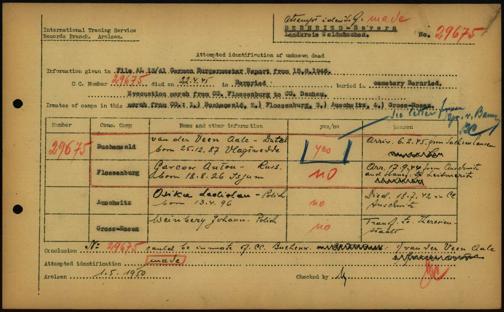 International Tracing Service
Records Branch. Arolsen.
Attempt identif. made
BERNRIED-Bavaria
Landkreis Weilheim
No. 29675
Attempted identification of unknown dead
Information given in File AL 12/A1 German Burgermaster Report from 15.8.1946.
C.C. Number 29675 died on 22.4.45 in Bernried buried in cemetary Bernried.
Evacuation march from CC. Flossenburg to CC. Dachau.
Inmates of camps in this march from CC: 1.) Buchenwald, 2.) Flossenburg, 3.) Auschwitz, 4.) Gross-Rosen.
See letter from
Number Conc. Camp Name and other information yes/no Reason
29675 Buchenwald van der Veen Aale - Dutch yes Arriv. 6.2.45 from
born 25.12.87 Vlagtwedde
Flossenburg Anton - Russ. no Arr. 17.9.44 from Auschwitz
born 18.8.26 and transf. to Leitmeritz
Auschwitz Osika Ladislau - Polish no Died 18.7.42 in CC
born 13.4.96 Auschwitz
Gross-Rosen Weinberg Johann - Polish no Transf. to Theresien-
stadt
Conclusion No 29675 could be inmate of CC. Buchenw. v/ van der Veen Aale
Attempted identification made
Arolsen 1.5.1950 Checked by